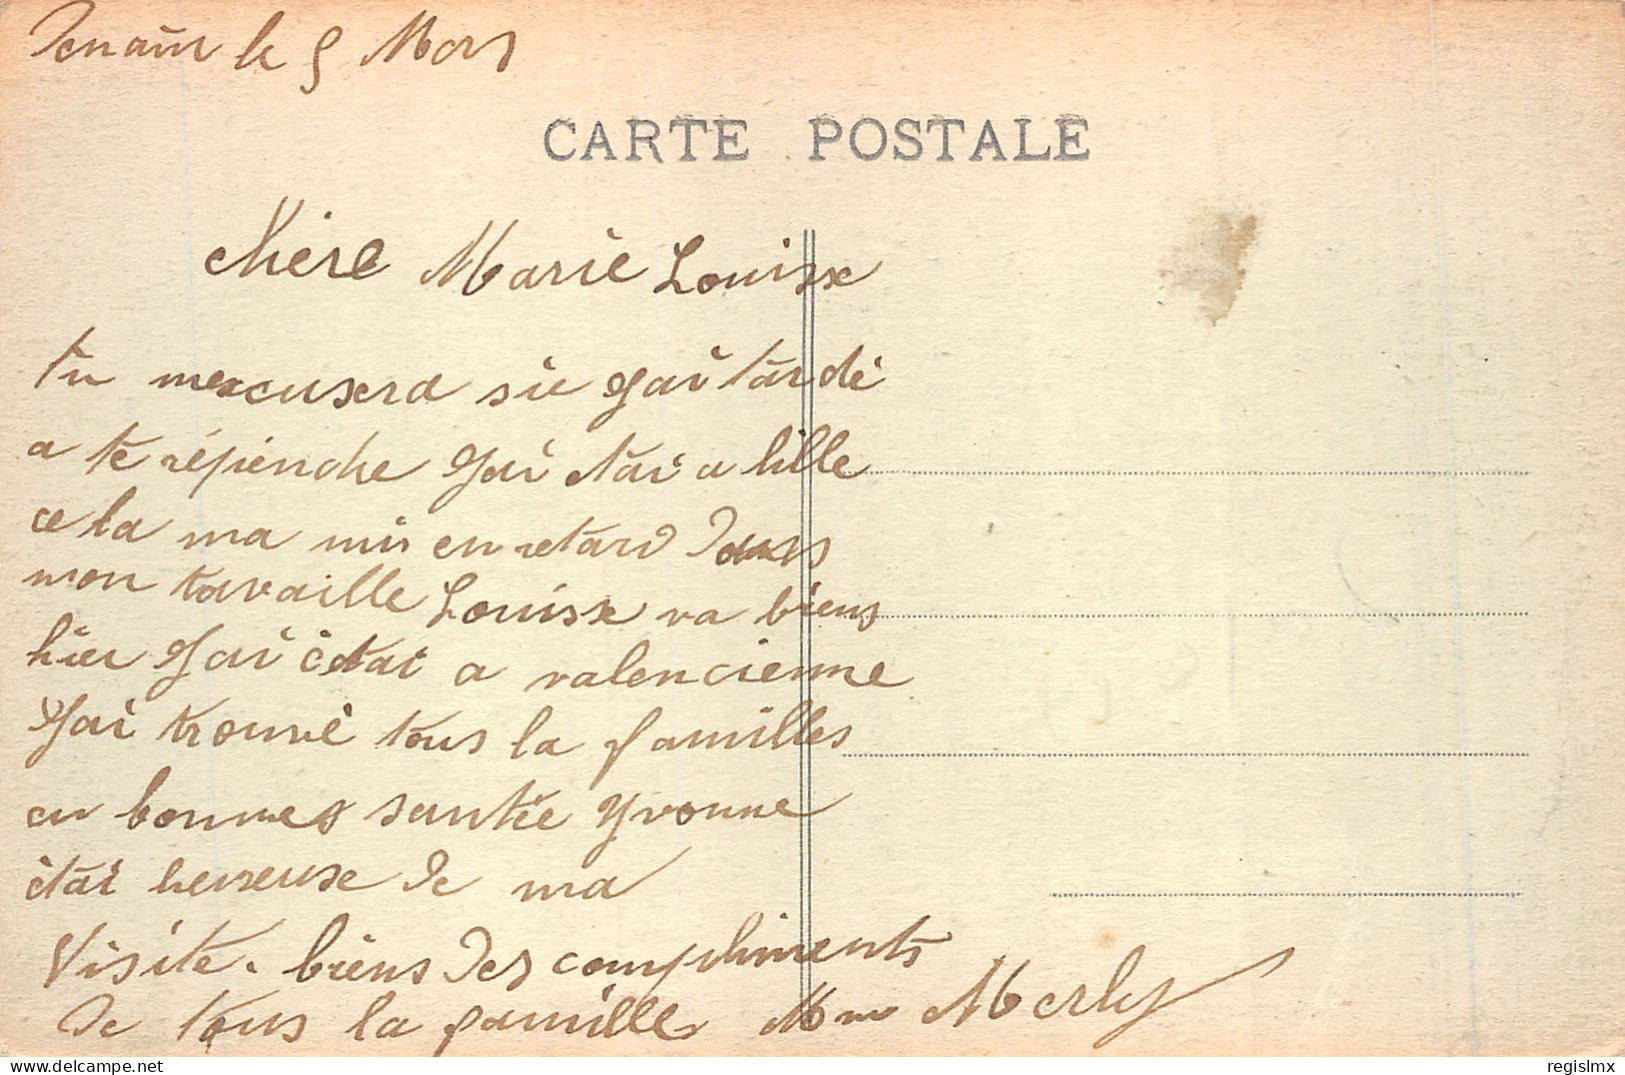 Denain le 5 Mars
CARTE POSTALE
chère Marie Louise
tu mexcusera sie jai tardé
a te répendre jai étai a lille
ce la ma mis en retard dans
mon tavaille Louise va biens
hier jai étai a valencienne
jai trouvé tous la familles
en bonnes santée yvonne
étai hereuse de ma
visite. biens des compliments
de tous la famille Mme Merly
regislmx